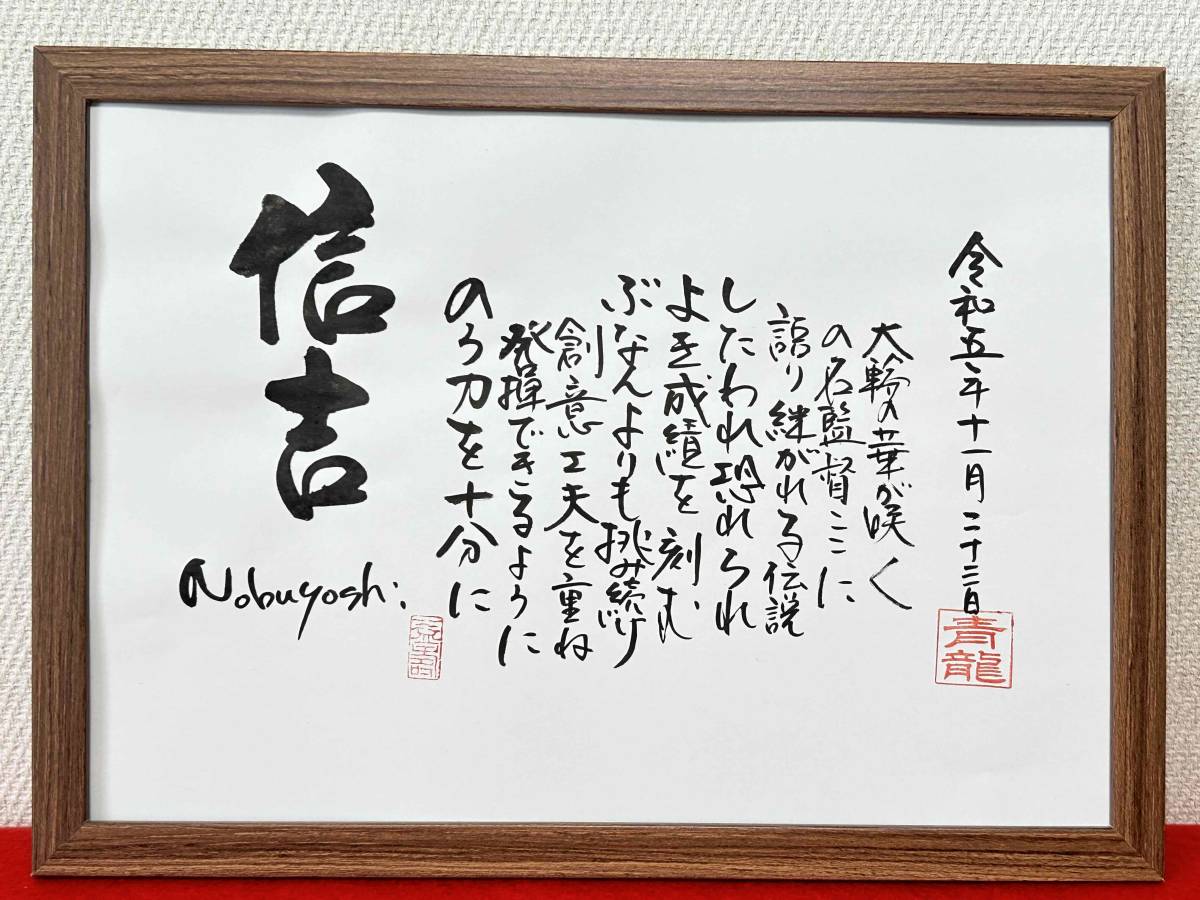 令和五年十一月二十二日
青龍
大輪の葉が咲く
の名監督ここに
語り継がれる伝説
したわれ恐れられ
よき成績を刻む
ぶなんよりも挑み続け
創意工夫を重ね
発揮できるように
のう力を十分に
信吉
Nobuyoshi